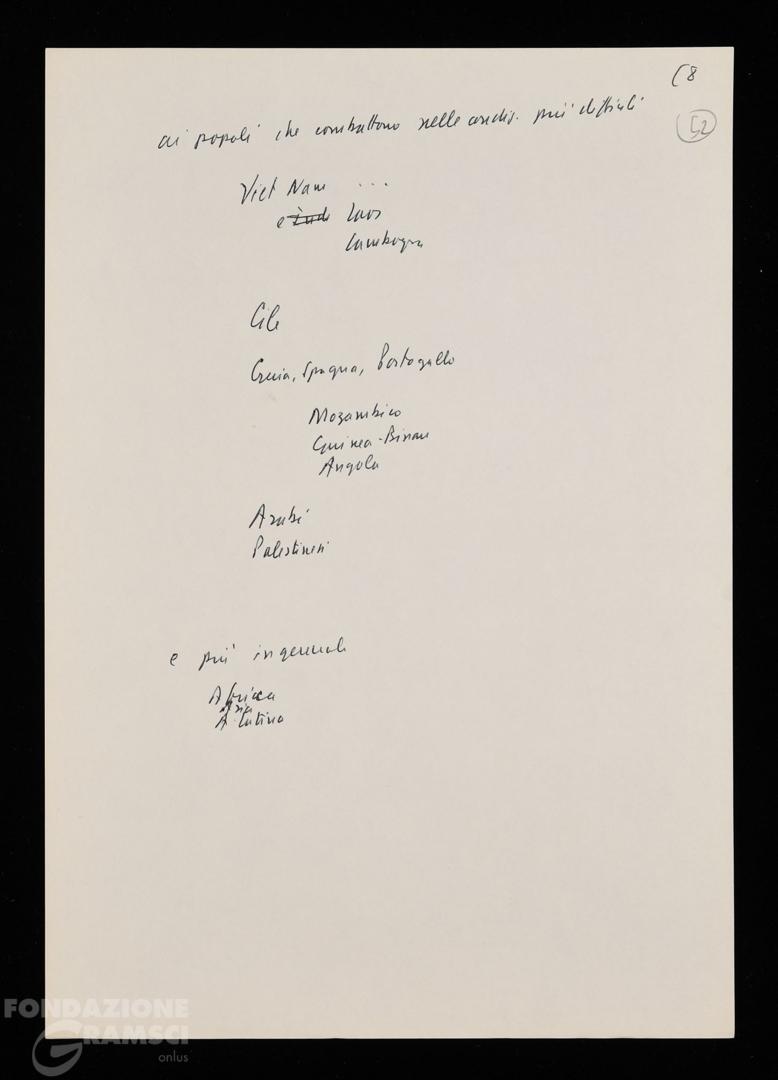 58
52
ai popoli che combattono nelle condiz. più difficili
Viet Nam ...
e Indo Laos
Cambogia
Cile
Grecia, Spagna, Portogallo
Mozambico
Guinea-Bissau
Angola
Arabi
Palestinesi
e più in generale
Africa
Asia
A. Latina
FONDAZIONE
GRAMSCI
onlus